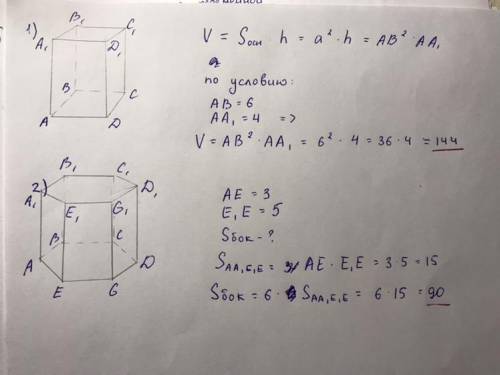 1)
B₁ C₁
A₁ D₁
B C
A D
V = Sосн h = a² · h = AB² · AA₁
по условию:
AB = 6
AA₁ = 4 =>
V = AB² · AA₁ = 6² · 4 = 36 · 4 = 144
2)
B₁ C₁
A₁ D₁
E₁ G₁
B C
A D
E G
AE = 3
E₁E = 5
Sбок - ?
SAA₁E₁E = AE · E₁E = 3 · 5 = 15
Sбок = 6 · SAA₁E₁E = 6 · 15 = 90